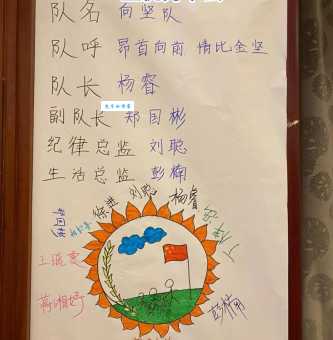 队名 向坚队
队呼 昂首向前 情比金坚
队长 杨睿
副队长 郑国彬
纪律总监 刘聪
生活总监 彭楠
徐进
刘聪
杨睿
彭楠